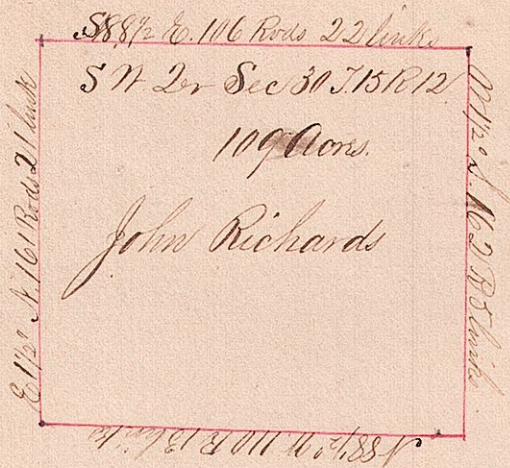 S 88½ E. 106 Rods 22 links
S W Qr Sec 30 T. 15 R 12
109 Acres.
John Richards
E 1½° N. 161 Rods 21 link
W 1½° S. 162 R 5 links
N 88½° W 110 R 13 links